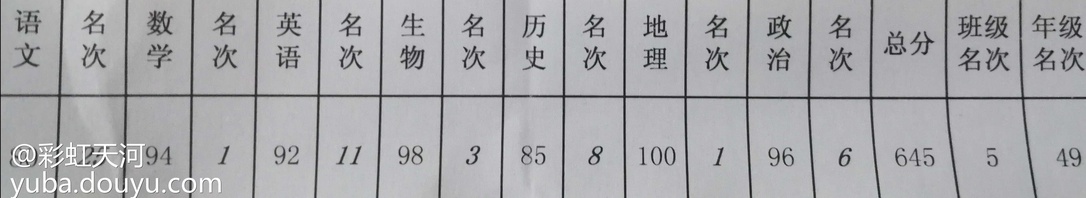 语文 名次 数学 名次 英语 名次 生物 名次 历史 名次 地理 名次 政治 名次 总分 班级名次 年级名次
94 1 92 11 98 3 85 8 100 1 96 6 645 5 49
@彩虹天河
yuba.douyu.com